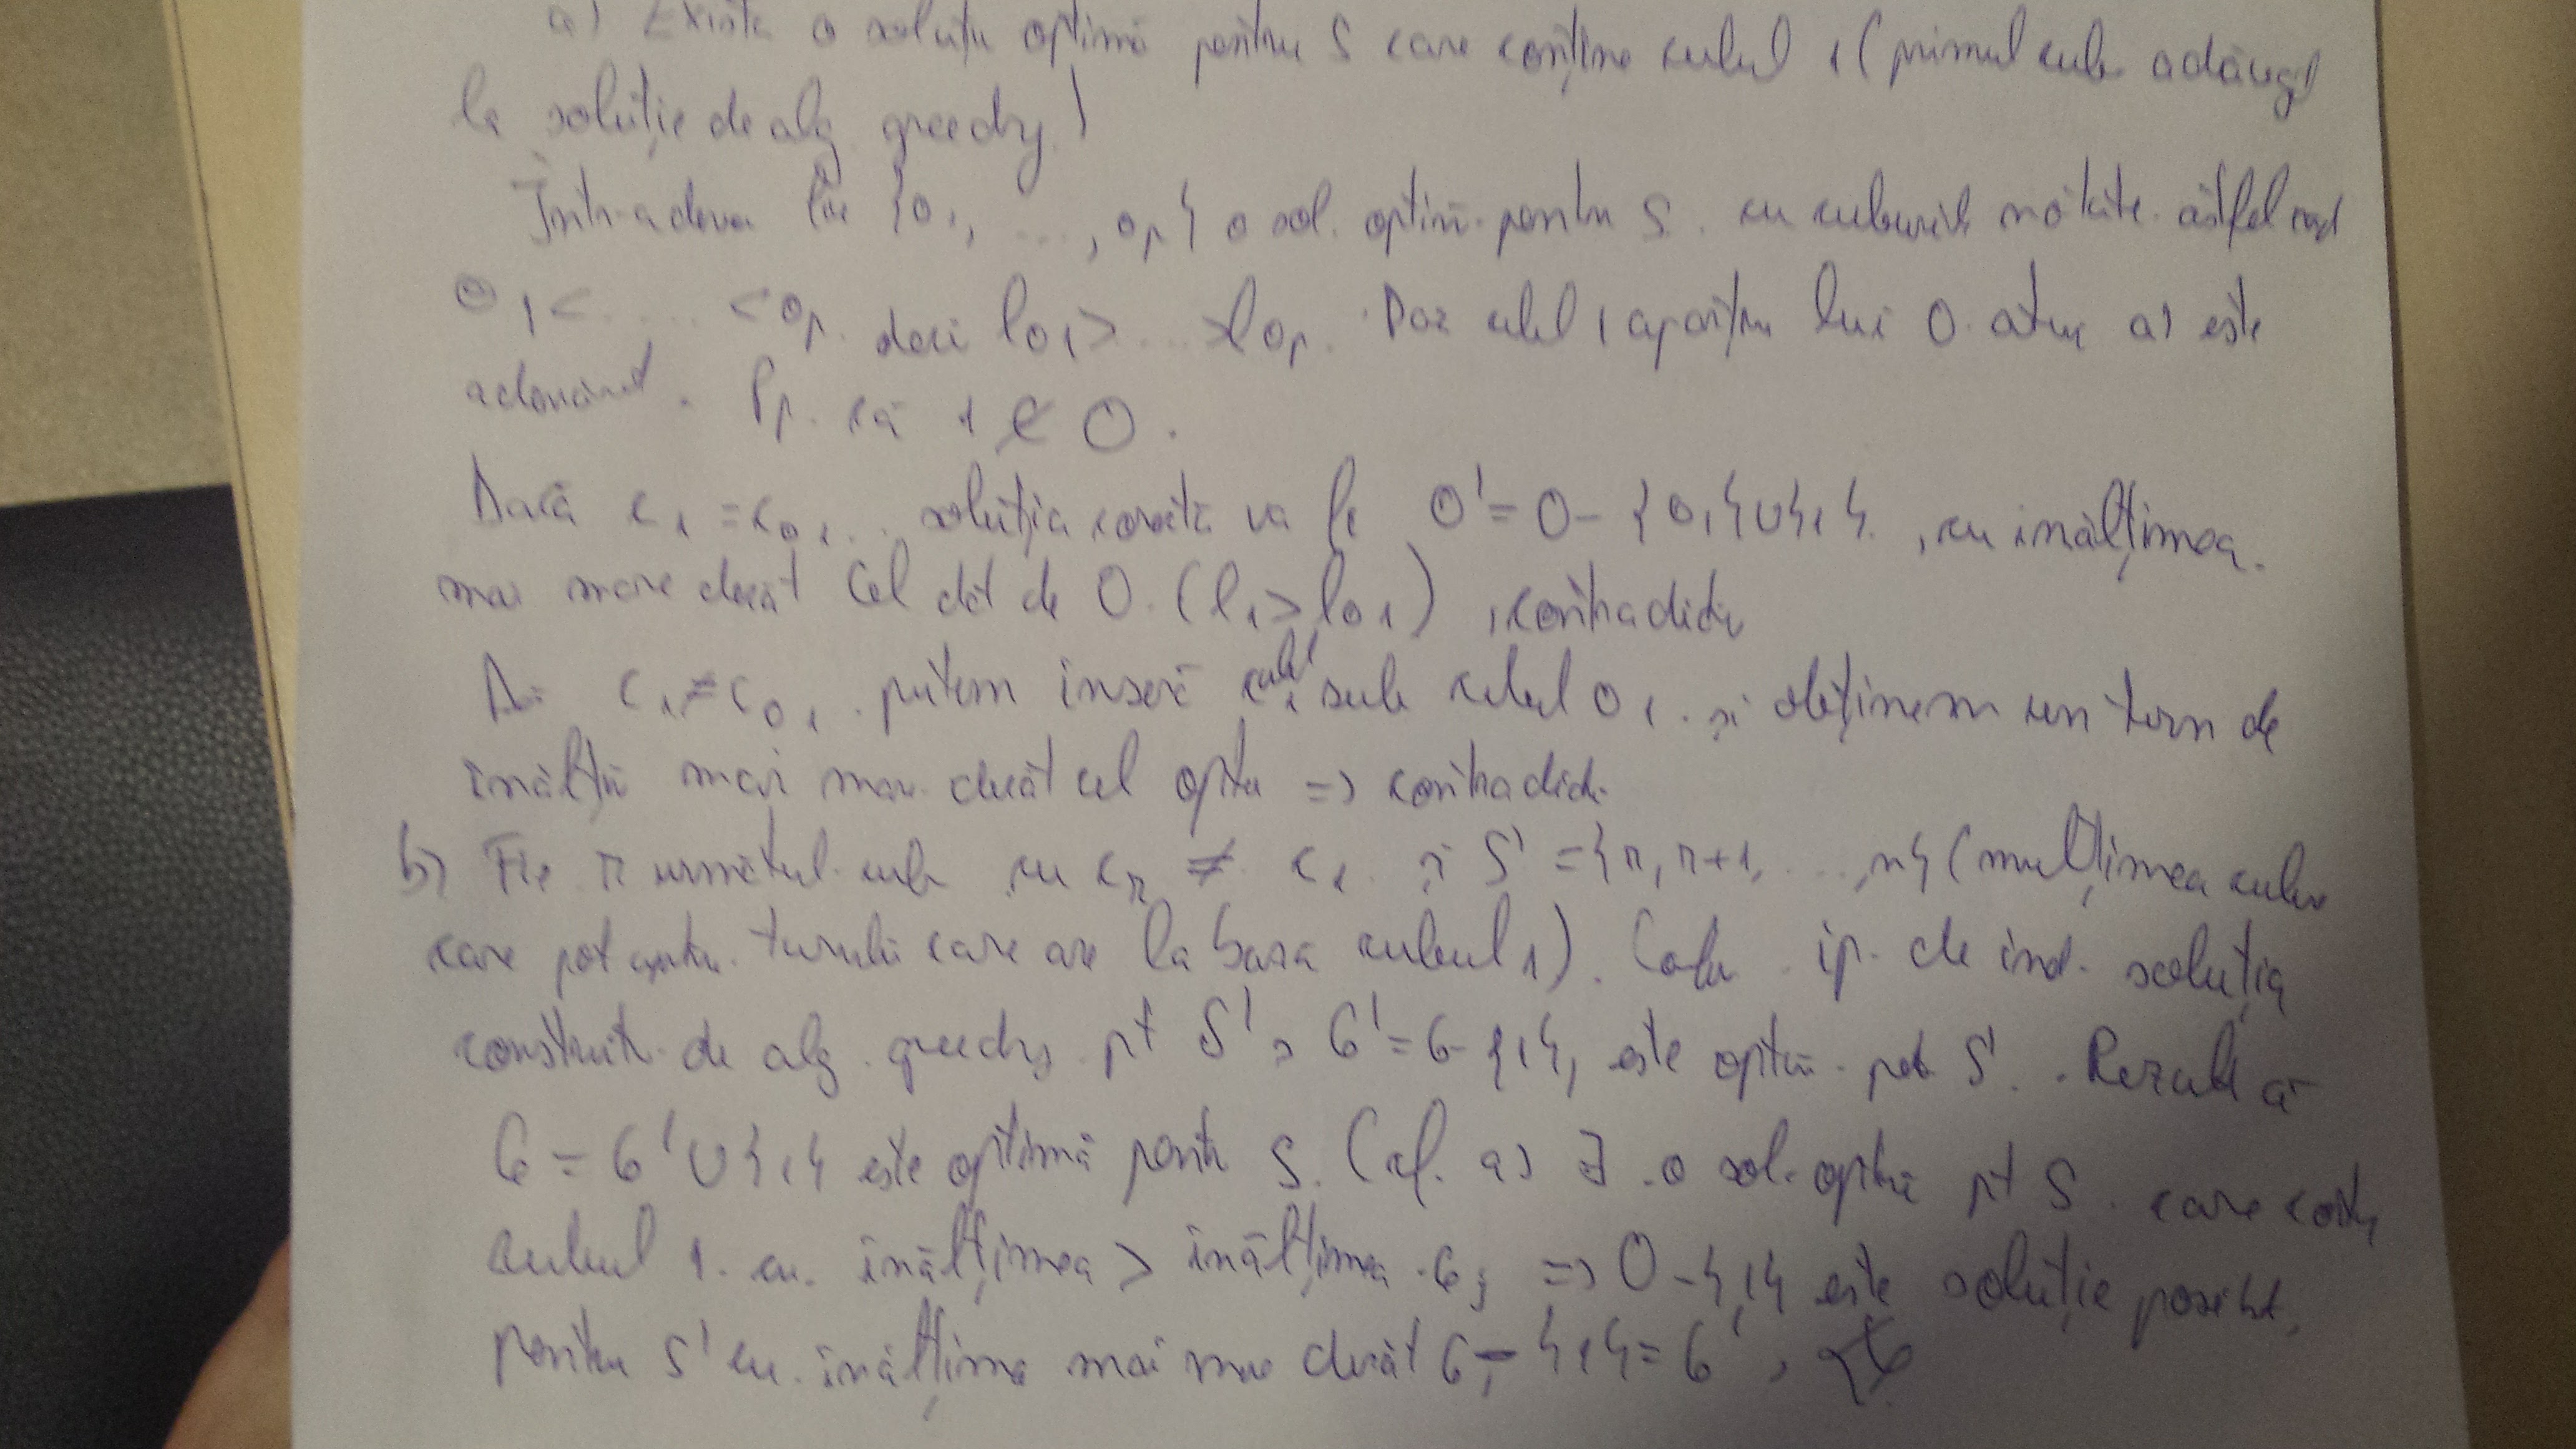 a) Există o soluție optimă pentru S care conține cubul 1 (primul cub adăugat
la soluție de alg greedy)
Într-adevăr fie {o1, ..., op} o sol. optimă pentru S. cu cuburile notate astfel încât
o1 < ... < op. deci lo1 > ... > lop. Dar cubul 1 aparține lui O. atunci a) este
adevărat. Pp. că 1 ∉ O.
Dacă c1 = co1. soluția corectă va fi O' = O - {o1} ∪ {1}. , cu înălțimea.
mai mare decât cel dat de O. (l1 > lo1) , contradicție
Dc c1 ≠ co1. putem insera cub 1 sub cubul o1. și obținem un turn de
înălțime mai mare decât cel optim => contradicție
b) Fie r următorul cub cu cr ≠ c1. și S' = {r, r+1, ..., n} (mulțimea cuburilor
care pot urma. turnului care are la bază cubul 1). Conf. ip. de ind. soluția
construită de alg. greedy pt S', G' = G - {1}, este optimă pt S'. Rezultă că
G = G' ∪ {1} este optimă pentru S. (cf. a) ∃ o sol. optimă pt S. care conține
cubul 1. cu. înălțimea > înălțimea G; => O - {1} este soluție posibilă
pentru S' cu înălțime mai mare decât G - {1} = G',